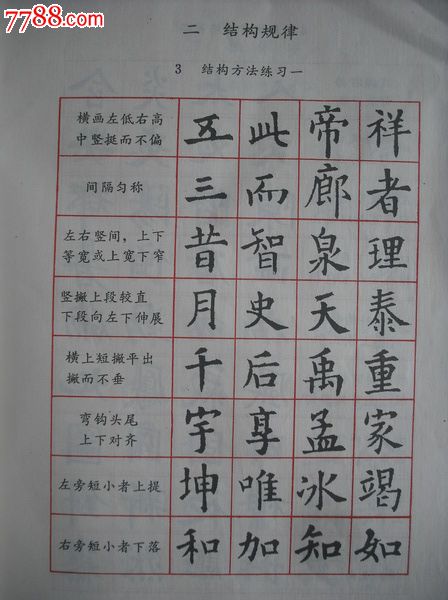 7788.com
二 结构规律
3 结构方法练习一
横画左低右高
中竖挺而不偏
五 此 帝 祥
间隔匀称
三 而 廊 者
左右竖间，上下
等宽或上宽下窄
昔 智 泉 理
竖撇上段较直
下段向左下伸展
月 史 天 泰
横上短撇平出
撇而不垂
千 后 禹 重
弯钩头尾
上下对齐
宇 享 孟 家
左旁短小者上提
坤 唯 冰 竭
右旁短小者下落
和 加 知 如